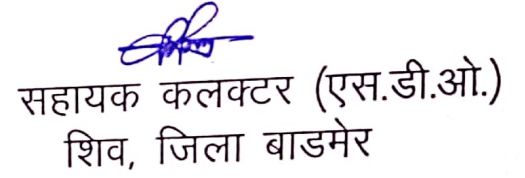 सहायक कलक्टर (एस.डी.ओ.)
शिव, जिला बाडमेर